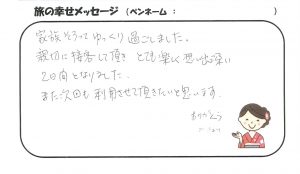 旅の幸せメッセージ（ペンネーム：　　　　）
家族そろってゆっくり過ごしました。
親切に接客して頂きとても楽しく思い出深い
2日間となりました。
また次回も利用させて頂きたいと思います。
ありがとう